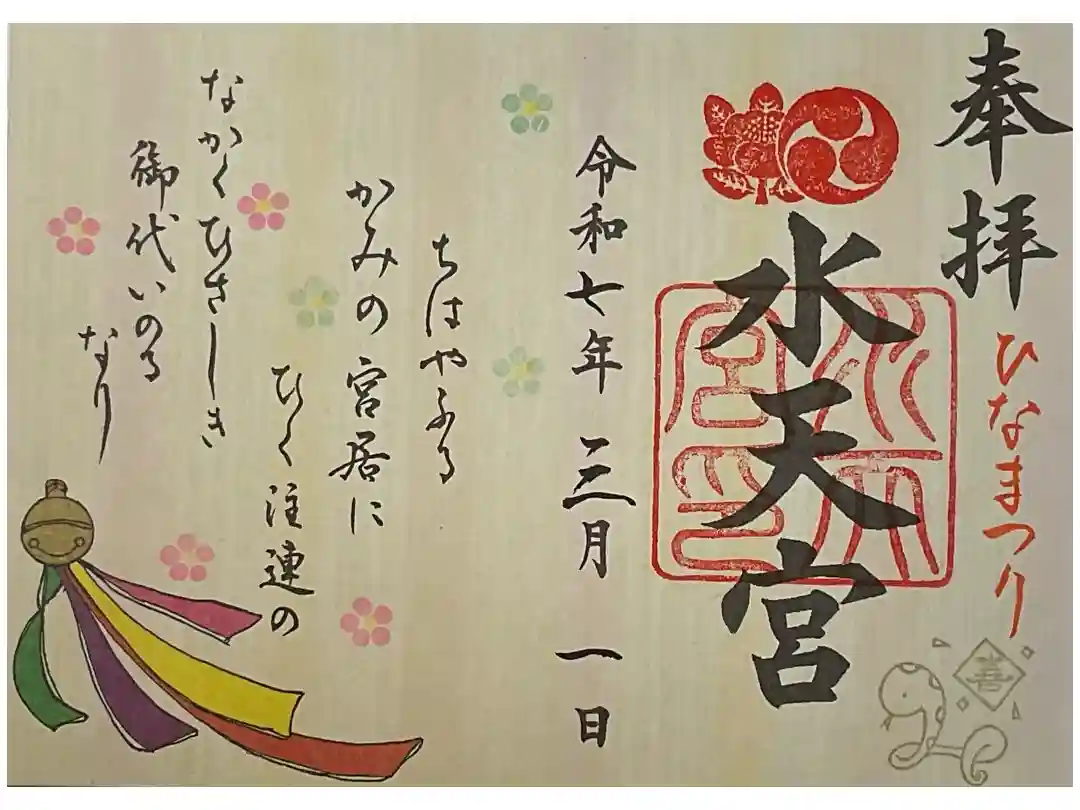 奉拝
ひなまつり
水天宮
令和七年 三月 一日
ちはやふる
かみの宮居に
ひく注連の
なかくひさしき
御代いのる
なり
善